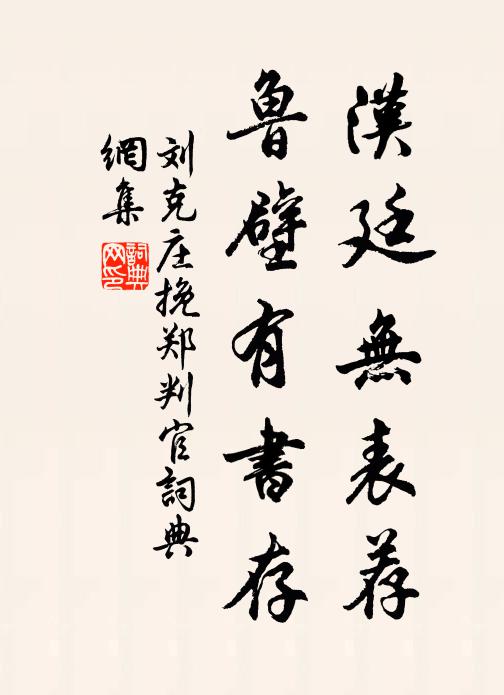 漢廷無表荐
魯壁有書存
刘克庄挽郑判官詞典
網集
詞典
网印